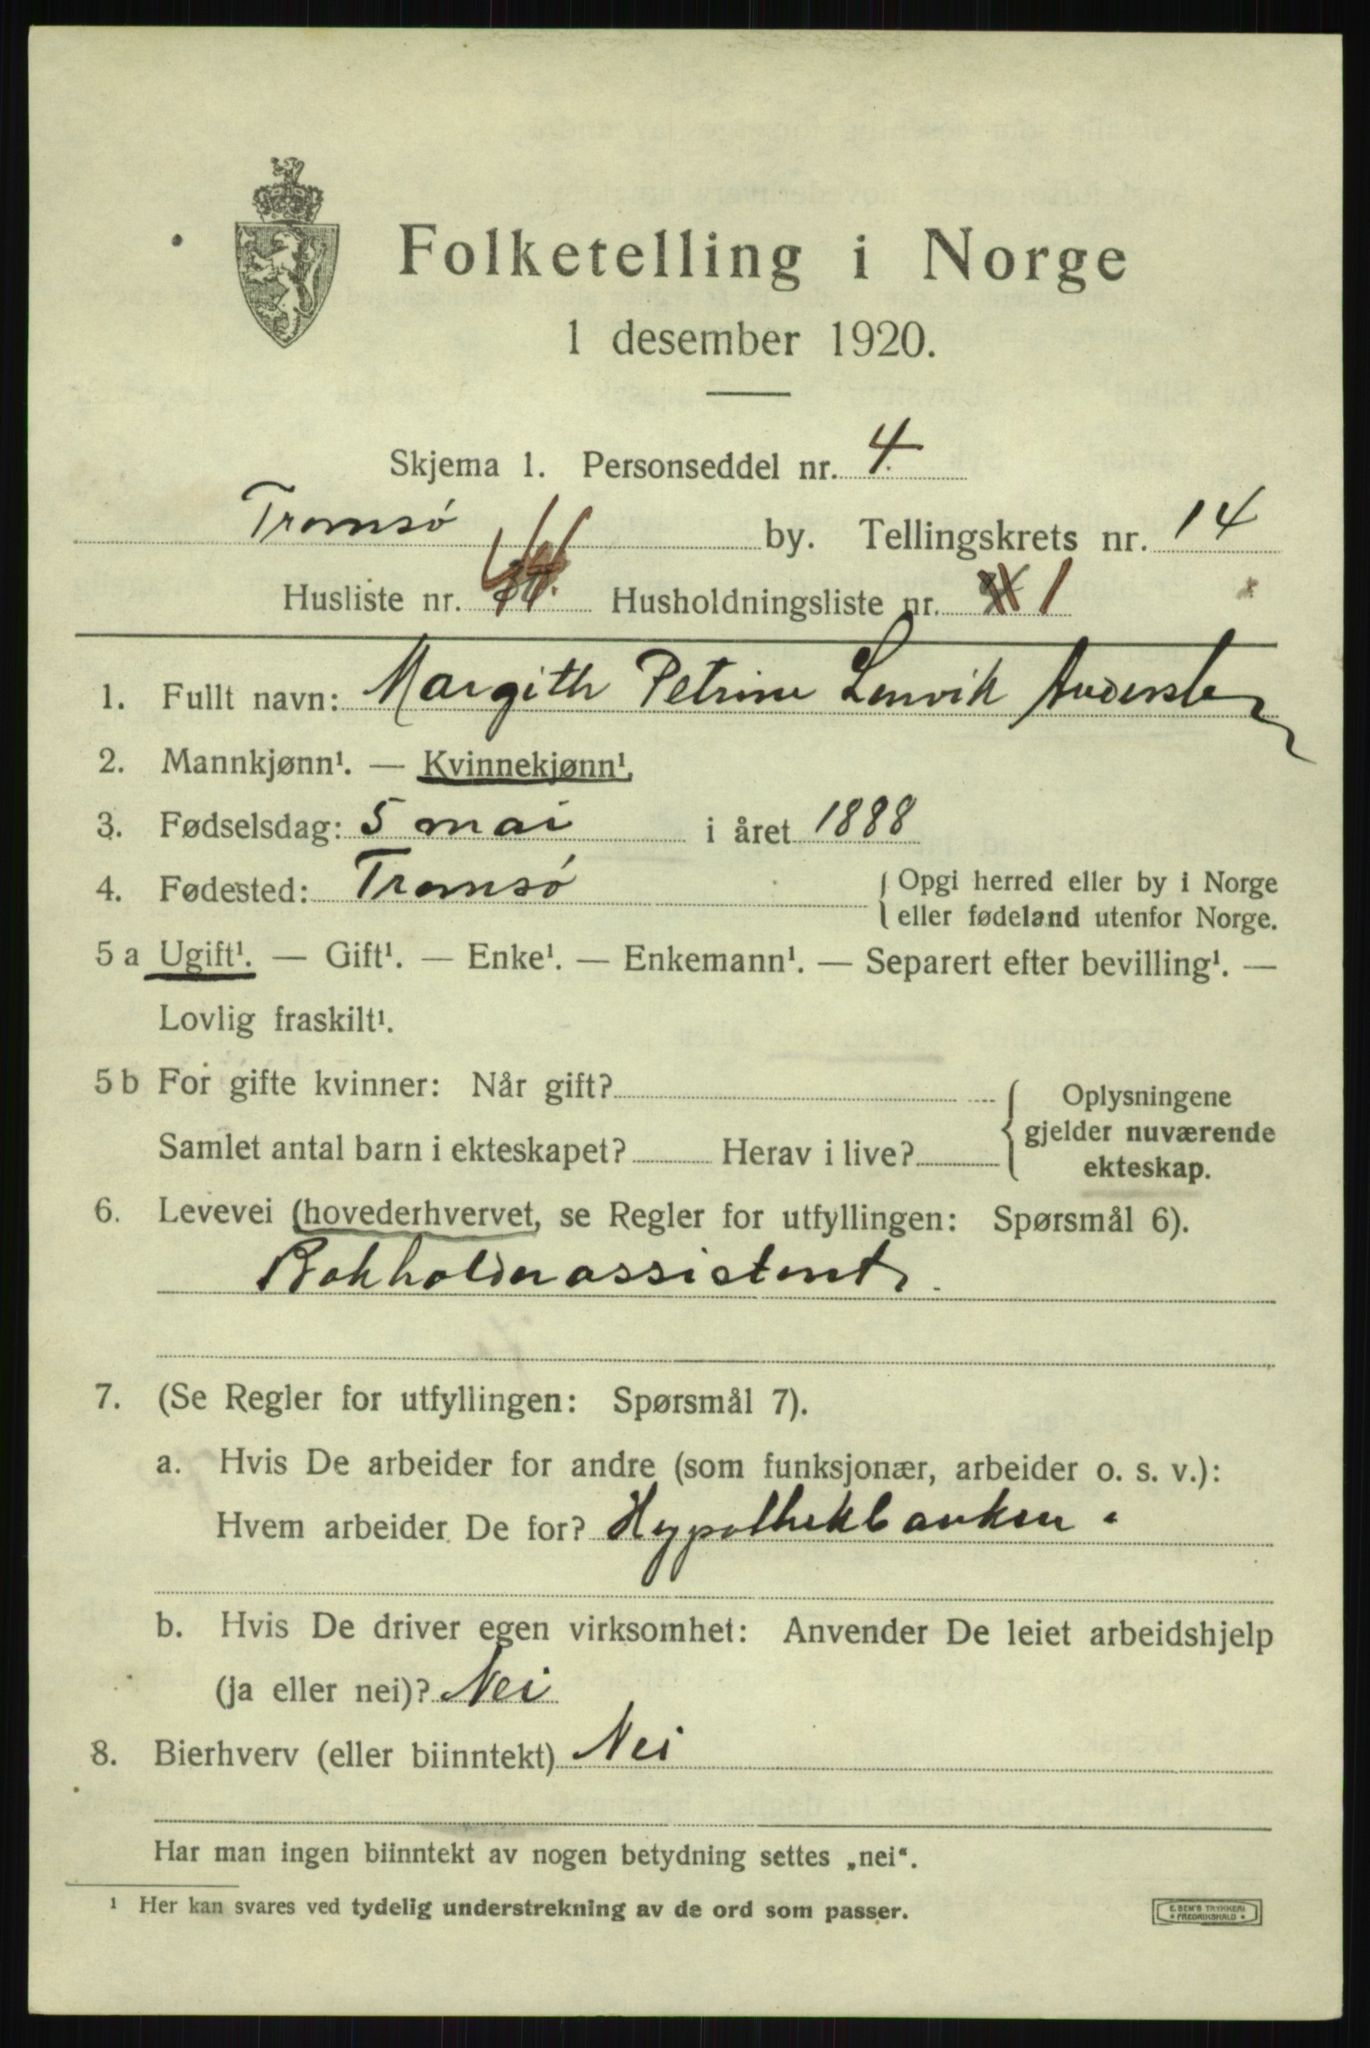 Folketelling i Norge
1 desember 1920.
Skjema 1. Personseddel nr. 4
Tromsø by. Tellingskrets nr. 14
Husliste nr. Husholdningsliste nr. 1
1. Fullt navn: Margith Petrine Lenvik Andersen
2. Mannkjønn¹. — Kvinnekjønn¹.
3. Fødselsdag: 5 mai i året 1888
4. Fødested: Tromsø { Opgi herred eller by i Norge
eller fødeland utenfor Norge.
5 a Ugift¹. — Gift¹. — Enke¹. — Enkemann¹. — Separert efter bevilling¹. —
Lovlig fraskilt¹.
5 b For gifte kvinner: Når gift?
Samlet antal barn i ekteskapet? Herav i live?
{ Oplysningene
gjelder nuværende
ekteskap.
6. Levevei (hovederhvervet, se Regler for utfyllingen: Spørsmål 6).
Bokholderassistent.
7. (Se Regler for utfyllingen: Spørsmål 7).
a. Hvis De arbeider for andre (som funksjonær, arbeider o. s. v.):
Hvem arbeider De for? Hypothekbanken.
b. Hvis De driver egen virksomhet: Anvender De leiet arbeidshjelp
(ja eller nei)? Nei
8. Bierhverv (eller biinntekt) Nei
Har man ingen biinntekt av nogen betydning settes „nei“.
¹ Her kan svares ved tydelig understrekning av de ord som passer.
E. SEM'S TRYKKERI
• FREDRIKSHALD •